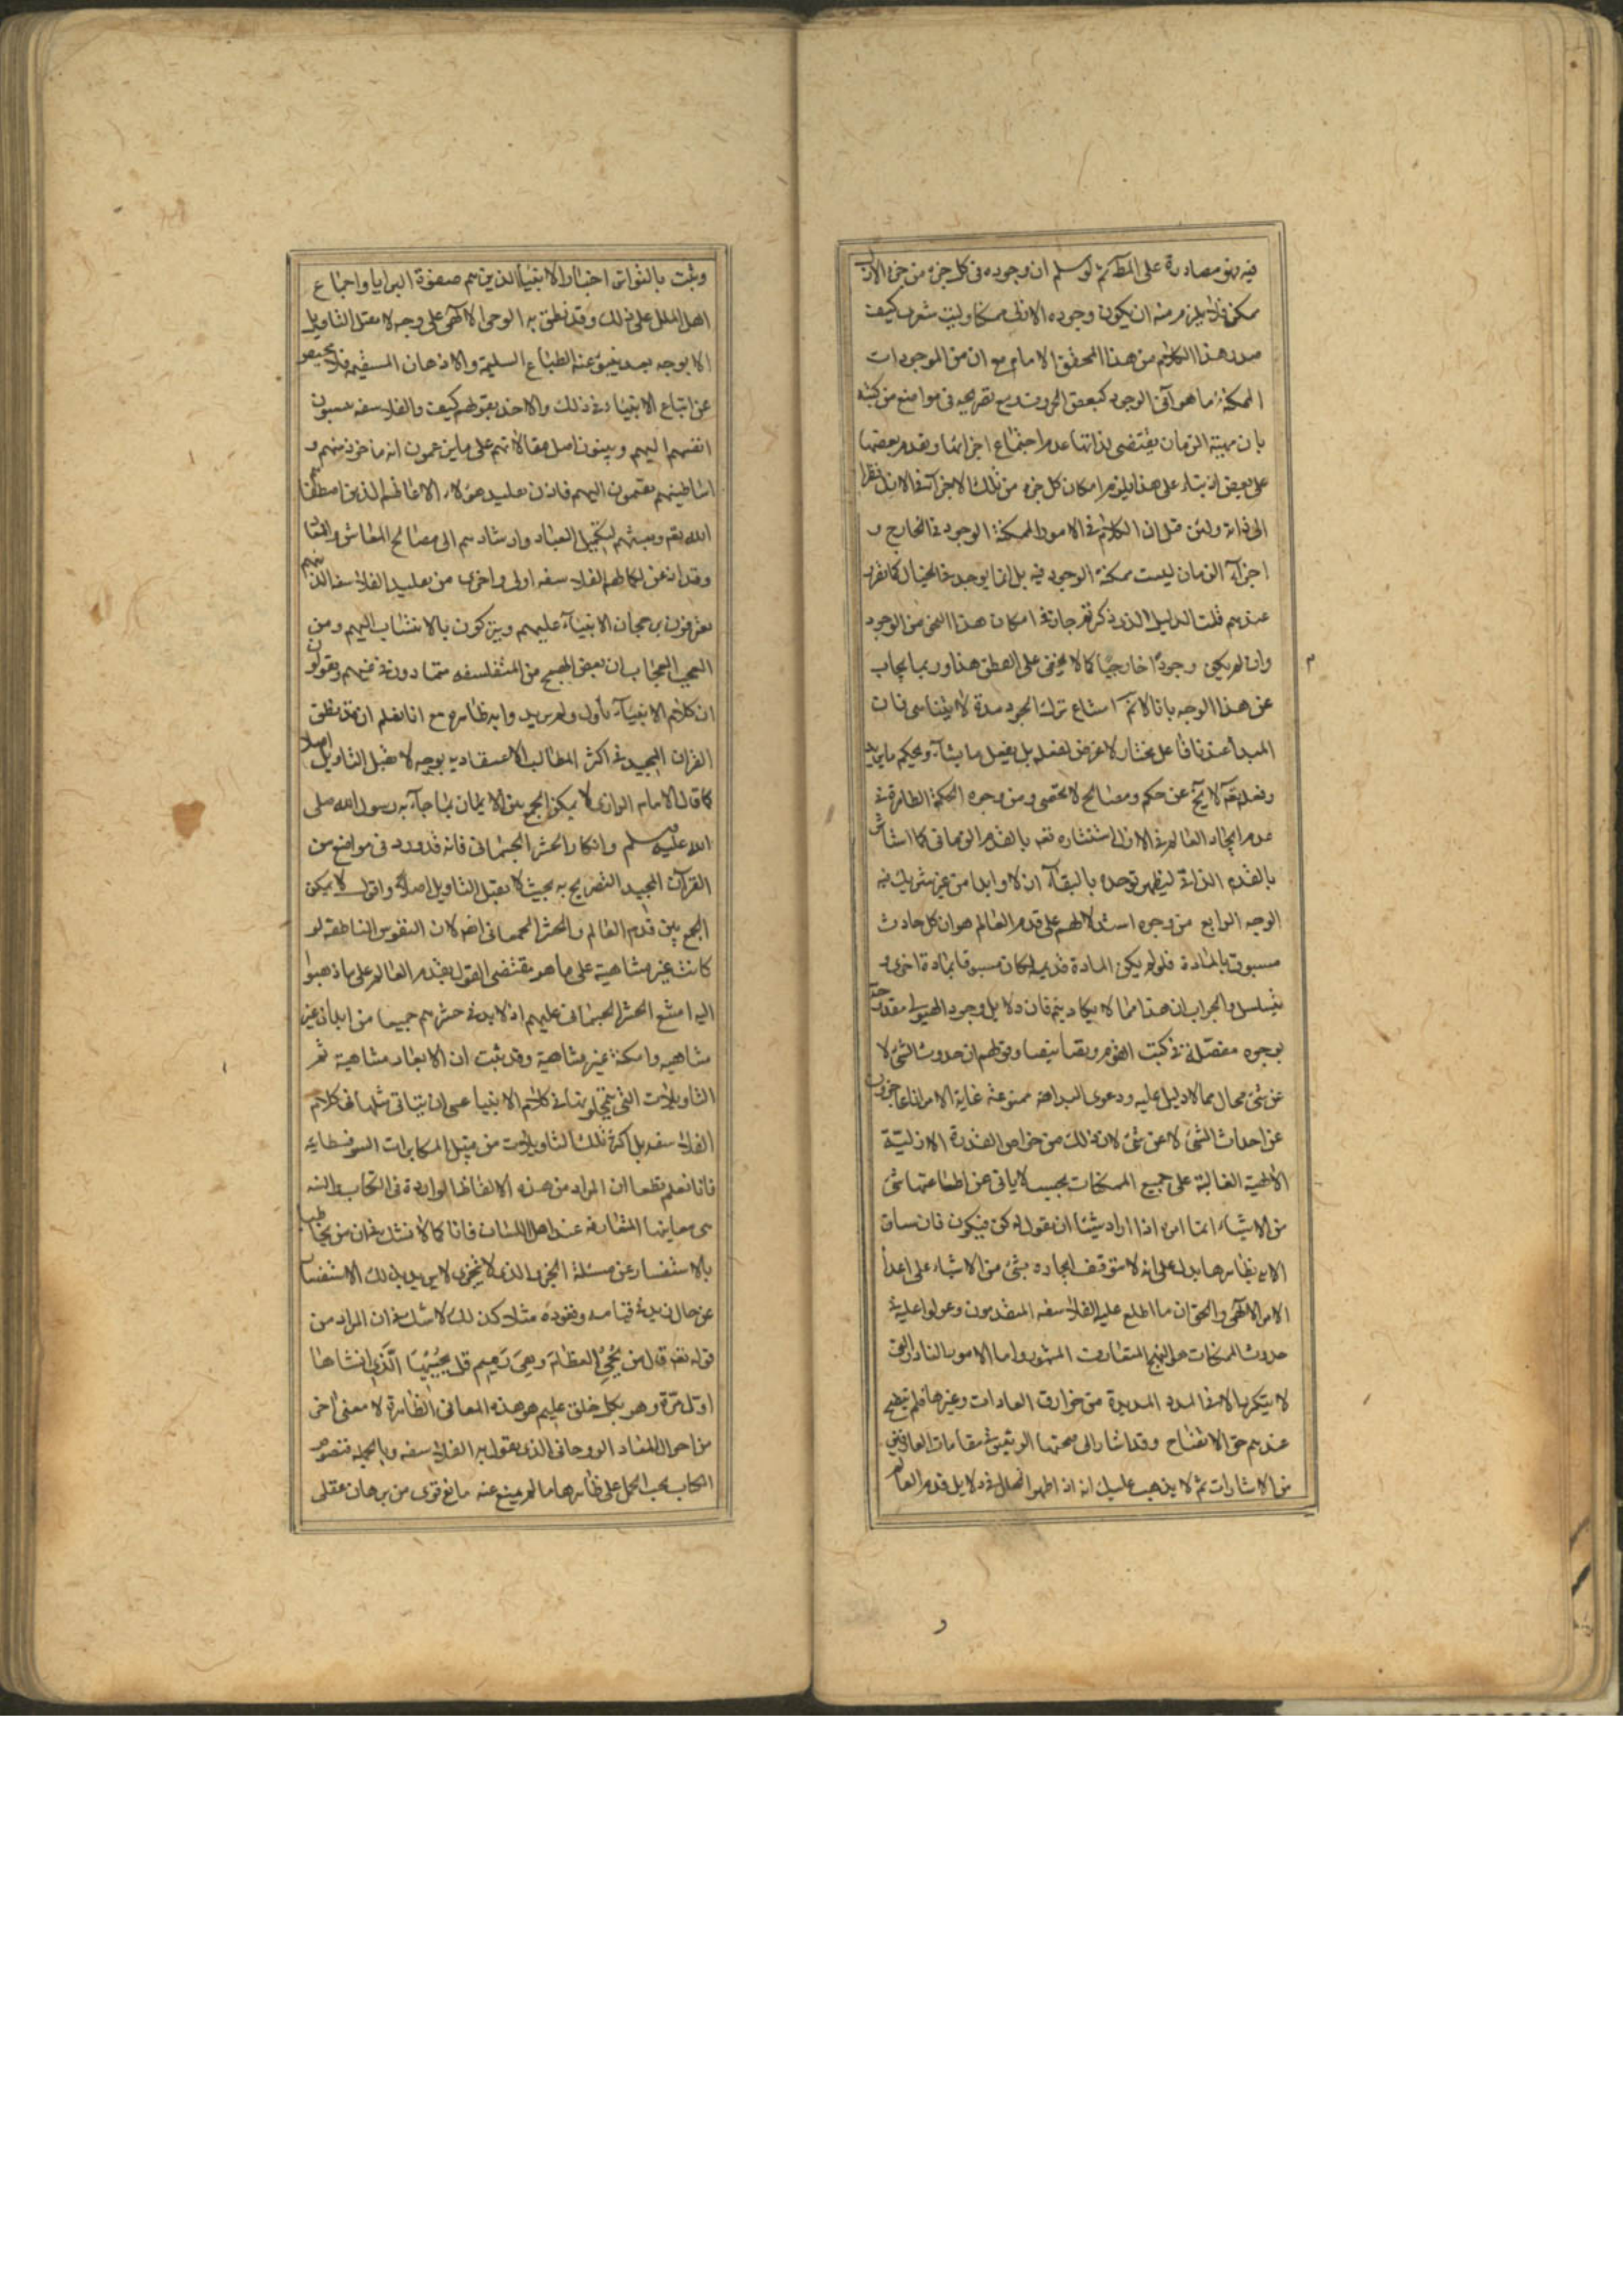 فيه فهو مصادرة على المط ثم لو سلم ان وجوده في كل جزء من جزء الازل
ممكن فلا يلزم منه ان يكون وجوده الازلى ممكنا وليت شعرى كيف
صدر هذا الكلام من هذا المحقق الامام مع ان من الموجودات
الممكنة ما هو آنى الوجود كبعض الحروف مع تصريحه فى مواضع من كتبه
بان مهية الزمان يقتضى لذاتها عدم اجتماع اجزائها وتقدم بعضها
على بعض اذ بناء على هذا يلزم امكان كل جزء من تلك الاجزآء فى الازل نظرا
الى ذاته ولئن قيل ان الكلام فى الامور الممكنة الوجود فى الخارج و
اجزآء الزمان ليست ممكنة الوجود فيه بل انما يوجد فى الخيال كما تقرر
عندهم قلت الدليل الذى ذكرتم جار فى امكان هذا النحو من الوجود
وان لم يكن وجودًا خارجيًا كما لا يخفى على الفطن هذا وربما يجاب
م
عن هذا الوجه بانا لانم امتناع ترك الجود مدة لا يتناهى فان
المبدأ عندنا فاعل مختار لا غرض لفعله بل يفعل ما يشآء ويحكم ما يريد
وفعله تعه لا يخ عن حكم ومصالح لا تحصى ومن وجوه الحكمة الظاهرة فى
عدم ايجاد العالم فى الازل استئثاره تعه بالقدم الزمانى كما استاثر
بالقدم الذاتى ليظهر توحده بالبقآء ازلا وابدا من غير شريك فيه
الوجه الرابع من وجوه استدلالهم على قدم العالم هو ان كل حادث
مسبوق بالمادة فلو لم يكن المادة قديمة لكان مسبوقا بمادة اخرى و
يتسلسل والجواب ان هذا مما لا يكاد يتم فان دلايل وجود الهيولى مقدوحة
بوجوه مفصلة فى كتب القوم وتصانيفنا وقولهم ان حدوث الشئ لا
عن شئ محال مما لا دليل عليه ودعوى البداهة ممنوعة غاية الامر انا عاجزون
عن احداث الشئ لا عن شئ لان ذلك من خواص القدرة الازلية
الالهية الغالبة على جميع الممكنات بحيث لا يابى عن اطاعتها شئ
من الاشياء انما امره اذا اراد شيئا ان يقول له كن فيكون فان سياق
الاية بظاهرها يدل على انه لا يتوقف ايجاده بشئ من الاشياء على اعدا
الامر الالهى والحق ان ما اطلع عليه الفلاسفه المتقدمون وعولوا عليه فى
حدوث الممكنات هو النهج المتعارف المشهور واما الامور النادرة التى
لا يتكرر الا فى المدد المديدة من خوارق العادات وغيرها فلم يتضح
عندهم حق الاتضاح وقد اشار الى صحتها الرئيس فى مقامات العارفين
من الاشارات ثم لا يذهب عليك انه اذ اظهر الخلل فى دلايل قدم العالم
و
وثبت بالتواتر اخبار الانبيأ الذين هم صفوة البرايا واجماع
اهل الملل على ذلك وقد نطق به الوحى الالهى على وجه لا يقبل التاويل
الا بوجه بعيد ينبو عنه الطباع السليمة والاذهان المستقيمة فلا محيص
عن اتباع الانبياء فى ذلك والاخذ بقولهم كيف والفلاسفه ينسبون
انفسهم اليهم ويبنون اصل مقالاتهم على ما يزعمون انه ماخوذ منهم و
اساطينهم ينتمون اليهم فاذن تقليد هؤلاء الاعاظم الذين اصطفاهم
الله تعه وبعثهم لتكميل العباد وارشادهم الى مصالح المعاش والمعاد
وقد اذعن لكلامهم الفلاسفه اولى واحرى من تقليد الفلاسفة الذين هم
يعترفون برجحان الانبيآء عليهم ويتبركون بالانتساب اليهم ومن
العجب العجاب ان بعض المتفلسفه يتمادون فى غيهم ويقولون
ان كلام الانبيآء مأول ولم يريدوا به ظاهره مع انا نعلم ان قد نطق
القران المجيد فى اكثر المطالب الاعتقاديه بوجه لا يقبل التاويل اصلا
كما قال الامام الرازى لا يمكن الجمع بين الايمان بما جآء به رسول الله صلى
الله عليه وسلم وانكار الحشر الجسمانى فانه قد ورد فى مواضع من
القرآن المجيد التصريح به بحيث لا يقبل التاويل اصلا واقول لا يمكن
الجمع بين قدم العالم والحشر الجسمانى ايضا لان النفوس الناطقه لو
كانت غير متناهية على ما هو مقتضى القول بقدم العالم على ما ذهبوا
اليه امتنع الحشر الجسمانى عليهم اذ لا بد فى حشرهم جميعا من ابدان غير
متناهيه وامكنة غير متناهية وقد ثبت ان الابعاد متناهية ثم
التاويلات التى يتمحلونها فى كلام الانبيا عسى ان يتاتى مثلها فى كلام
الفلاسفه بل اكثر تلك التاويلات من قبيل المكابرات السوفسطايه
فانا نعلم قطعا ان المراد من هذه الالفاظ الواردة فى الكتاب والسنه
هى معانيها المتعارفه عند اهل اللسان فانا كما لا نشك فى ان من يخاطبنا
بالاستفسار عن مسئلة الجزء الذى لا يتجزى لا يريد بذلك الاستفسار
عن حال زيد فى قيامه وقعوده مثلا كذلك لا شك فى ان المراد من
قوله تعه قال من يُحْيِ العظام وَهِيَ رَمِيم قل يُحْيِيْهَا الَّذِى انشاها
اوّل مرّة وهو بكل خلق عليم هو هذه المعانى الظاهرة لا معنى آخر
من احوال المعاد الروحانى الذى يقول به الفلاسفه وبالجمله فنصوص
الكتاب يجب الحمل على ظاهرها ما لم يمنع عنه مانع قوى من برهان عقلى